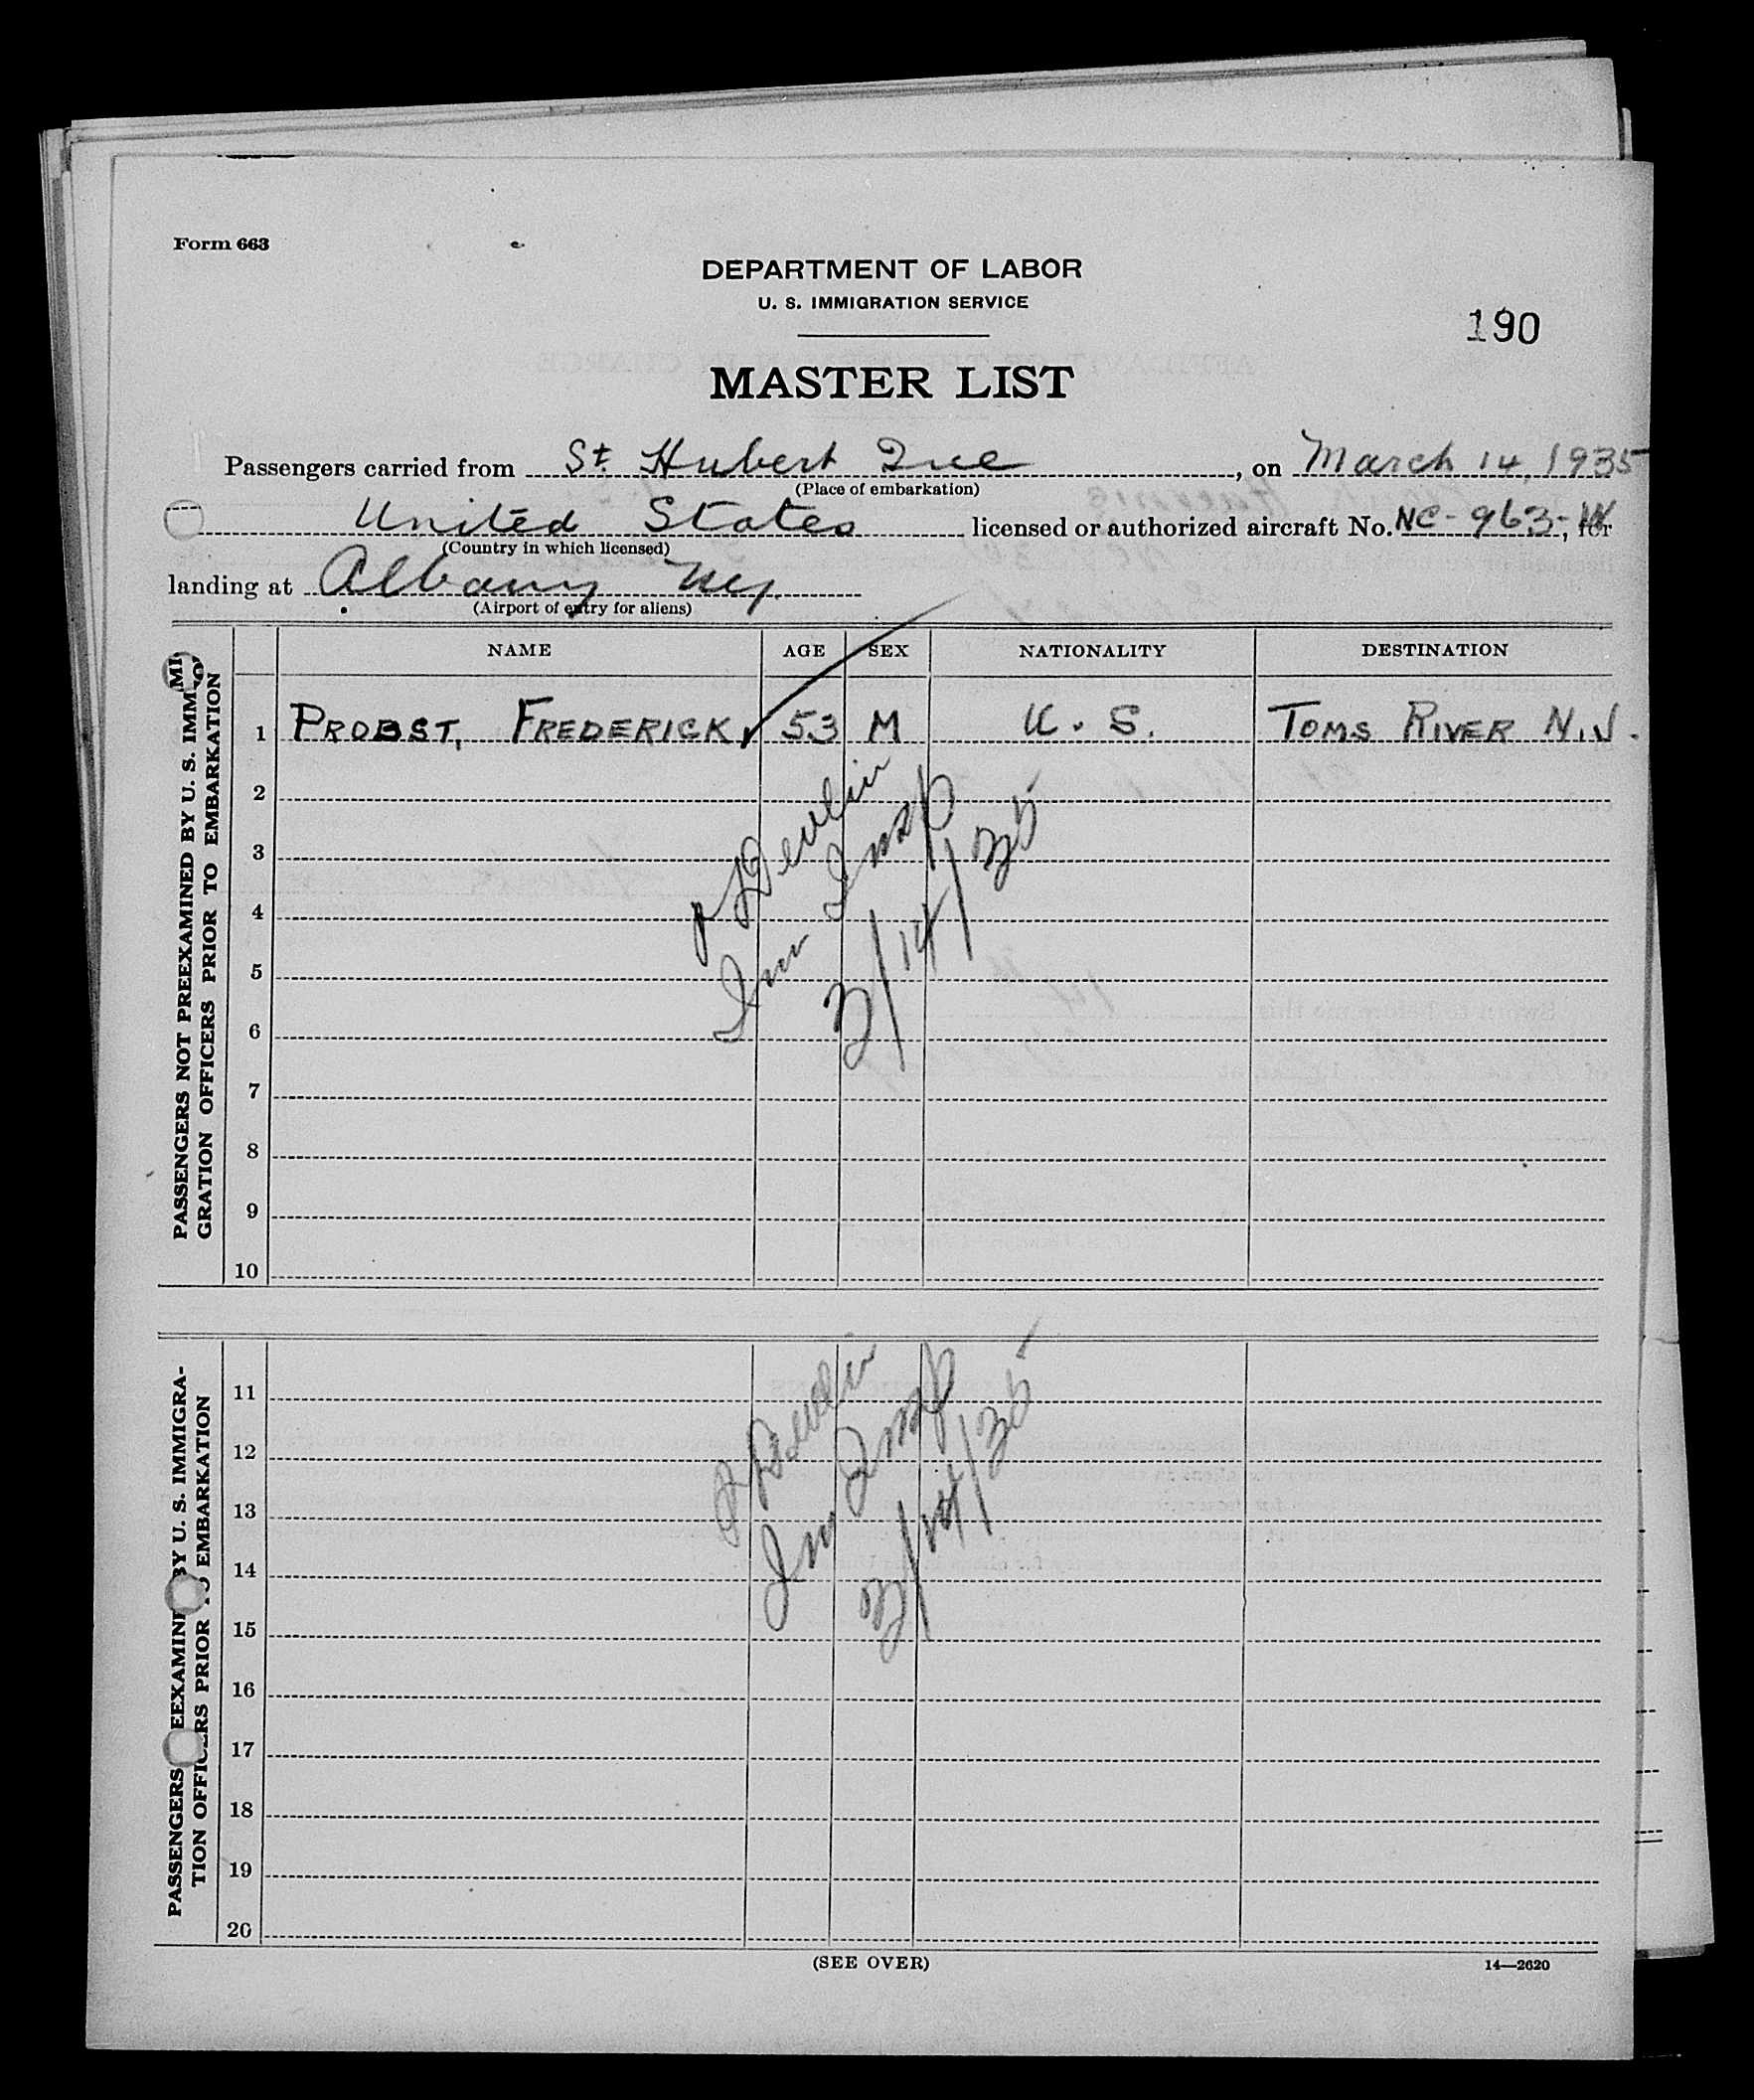 Form 663
DEPARTMENT OF LABOR
U. S. IMMIGRATION SERVICE
190
MASTER LIST
Passengers carried from St. Hubert Que, on March 14, 1935
(Place of embarkation)
United States licensed or authorized aircraft No. NC-963-W, for
(Country in which licensed)
landing at Albany Ny.
(Airport of entry for aliens)
NAME AGE SEX NATIONALITY DESTINATION
PASSENGERS NOT PREEXAMINED BY U. S. IMMI
GRATION OFFICERS PRIOR TO EMBARKATION
1 PROBST, FREDERICK 53 M U. S. TOMS RIVER N.J.
2
3
4
5
6
7
8
9
10
Devlin
Imm Insp
3/14/35
PASSENGERS EEXAMINE BY U. S. IMMIGRA-
TION OFFICERS PRIOR TO EMBARKATION
11
12
13
14
15
16
17
18
19
20
Devlin
Imm Insp
3/14/35
(SEE OVER)
14—2620